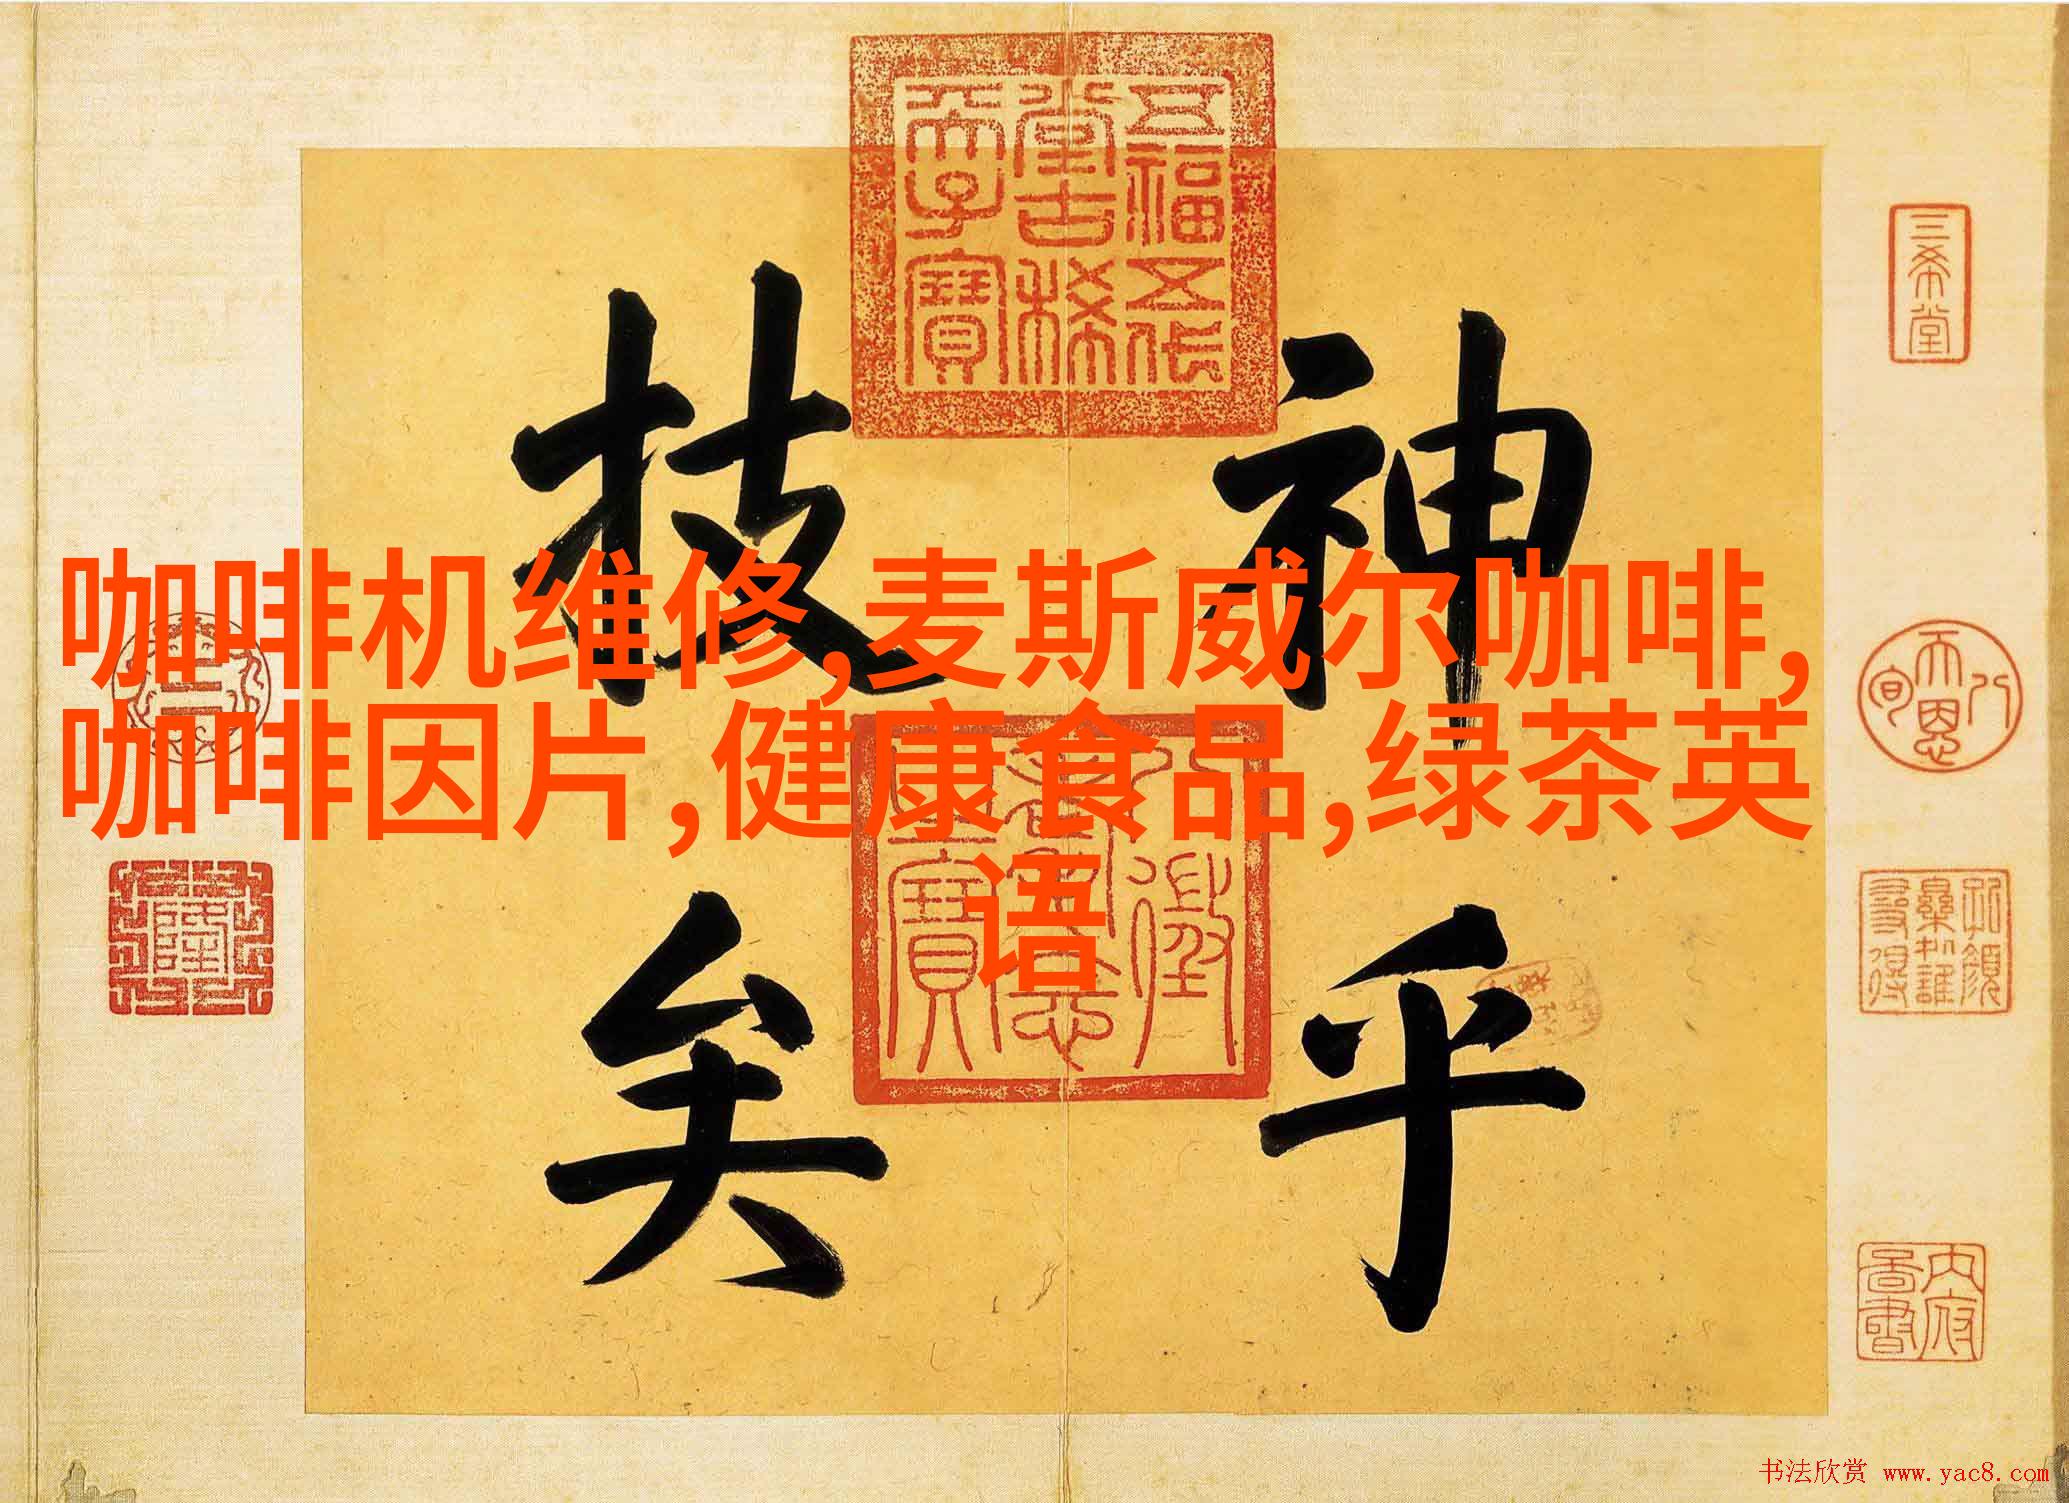 咖啡机维修,麦斯威尔咖啡,
咖啡因片,健康食品,绿茶英
语
神乎
技矣
五福五代
堂古稀
天子寶
八徵
耄念
之寶
三希堂
書法欣赏 www.yac8.com